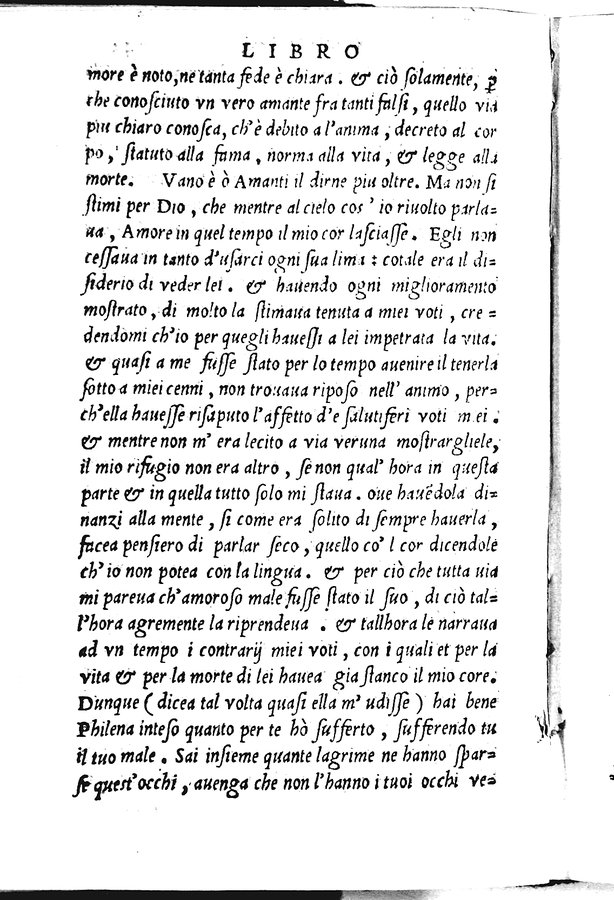 LIBRO
more è noto, ne tanta fede è chiara . & ciò ſolamente, ꝑ
che conoſciuto vn vero amante fra tanti falſi , quello via
piu chiaro conoſca, ch'è debito a l'anima , decreto al cor
po , ſtatuto alla fama , norma alla vita , & legge alla
morte. Vano è ò Amanti il dirne piu oltre. Ma non ſi
ſtimi per Dio , che mentre al cielo cos' io riuolto parla=
ua , Amore in quel tempo il mio cor laſciaſſe. Egli non
ceſſaua in tanto d'uſarci ogni ſua lima : cotale era il di=
ſiderio di veder lei . & hauendo ogni miglioramento
moſtrato , di molto la ſtimaua tenuta a miei voti , cre=
dendomi ch'io per quegli haueſſi a lei impetrata la vita.
& quaſi a me fuſſe ſtato per lo tempo auenire il tenerla
ſotto a miei cenni , non trouaua ripoſo nell' animo , per=
ch'ella haueſſe riſaputo l'affetto d'e ſalutiferi voti miei .
& mentre non m' era lecito a via veruna moſtrargliele,
il mio rifugio non era altro , ſe non qual' hora in queſta
parte & in quella tutto ſolo mi ſtaua . oue hauēdola di=
nanzi alla mente , ſi come era ſolito di ſempre hauerla ,
facea penſiero di parlar ſeco , quello co' l cor dicendole
ch' io non potea con la lingua . & per ciò che tutta uia
mi pareua ch'amoroſo male fuſſe ſtato il ſuo , di ciò tal=
l'hora agremente la riprendeua . & tallhora le narraua
ad vn tempo i contrarij miei voti , con i quali et per la
vita & per la morte di lei hauea gia ſtanco il mio core.
Dunque ( dicea tal volta quaſi ella m' udiſſe ) hai bene
Philena inteſo quanto per te hò ſufferto , ſufferendo tu
il tuo male . Sai inſieme quante lagrime ne hanno ſpar=
ſe queſt'occhi , auenga che non l'hanno i tuoi occhi ve=